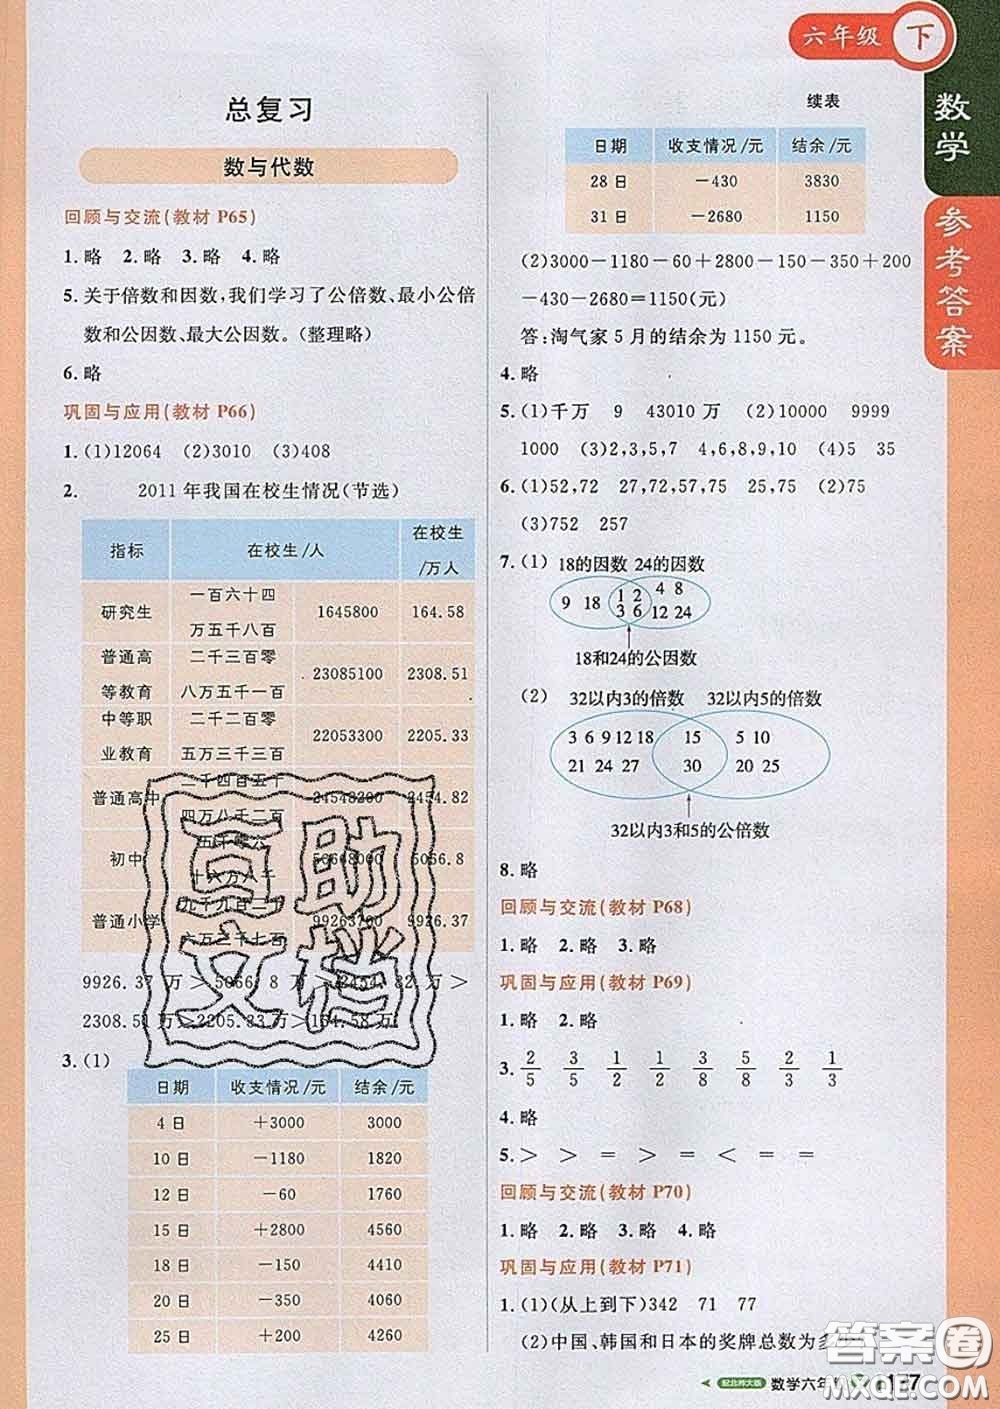 六年级 下
数学
参考答案
总复习
数与代数
回顾与交流(教材 P65)
1.略 2.略 3.略 4.略
5.关于倍数和因数,我们学习了公倍数、最小公倍
数和公因数、最大公因数。(整理略)
6.略
巩固与应用(教材 P66)
1.(1)12064 (2)3010 (3)408
2. 2011年我国在校生情况(节选)
指标 在校生/人 在校生/万人
研究生 一百六十四万五千八百 1645800 164.58
普通高等教育 二千三百零八万五千一百 23085100 2308.51
中等职业教育 二千二百零五万三千三百 22053300 2205.33
普通高中 二千四百五十四万八千二百 24548200 2454.82
初中 五千零六十六万八千 50668000 5066.8
普通小学 九千九百二十六万三千七百 99263700 9926.37
9926.37 万>5066.8 万>2454.82 万>
2308.51 万>2205.83 万>164.58 万
3.(1)
日期 收支情况/元 结余/元
4 日 +3000 3000
10 日 -1180 1820
12 日 -60 1760
15 日 +2800 4560
18 日 -150 4410
20 日 -350 4060
25 日 +200 4260
续表
日期 收支情况/元 结余/元
28 日 -430 3830
31 日 -2680 1150
(2)3000-1180-60+2800-150-350+200
-430-2680=1150(元)
答:淘气家 5 月的结余为 1150 元。
4.略
5.(1)千万 9 43010 万 (2)10000 9999
1000 (3)2,3,5,7 4,6,8,9,10 (4)5 35
6.(1)52,72 27,72,57,75 25,75 (2)75
(3)752 257
7.(1) 18的因数 24的因数
9 18 1 2 4 8
3 6 12 24
18和24的公因数
(2) 32以内3的倍数 32以内5的倍数
3 6 9 12 18 15 5 10
21 24 27 30 20 25
32以内3和5的公倍数
8.略
回顾与交流(教材 P68)
1.略 2.略 3.略
巩固与应用(教材 P69)
1.略 2.略
3. 2/5 3/5 1/2 1/2 3/8 5/8 2/3 1/3
4.略
5.> > = > = < = =
回顾与交流(教材 P70)
1.略 2.略 3.略 4.略
巩固与应用(教材 P71)
1.(1)(从上到下)342 71 77
(2)中国、韩国和日本的奖牌总数为多少
配北师大版 数学六年
互助
文档
答案圈
MXQE.COM